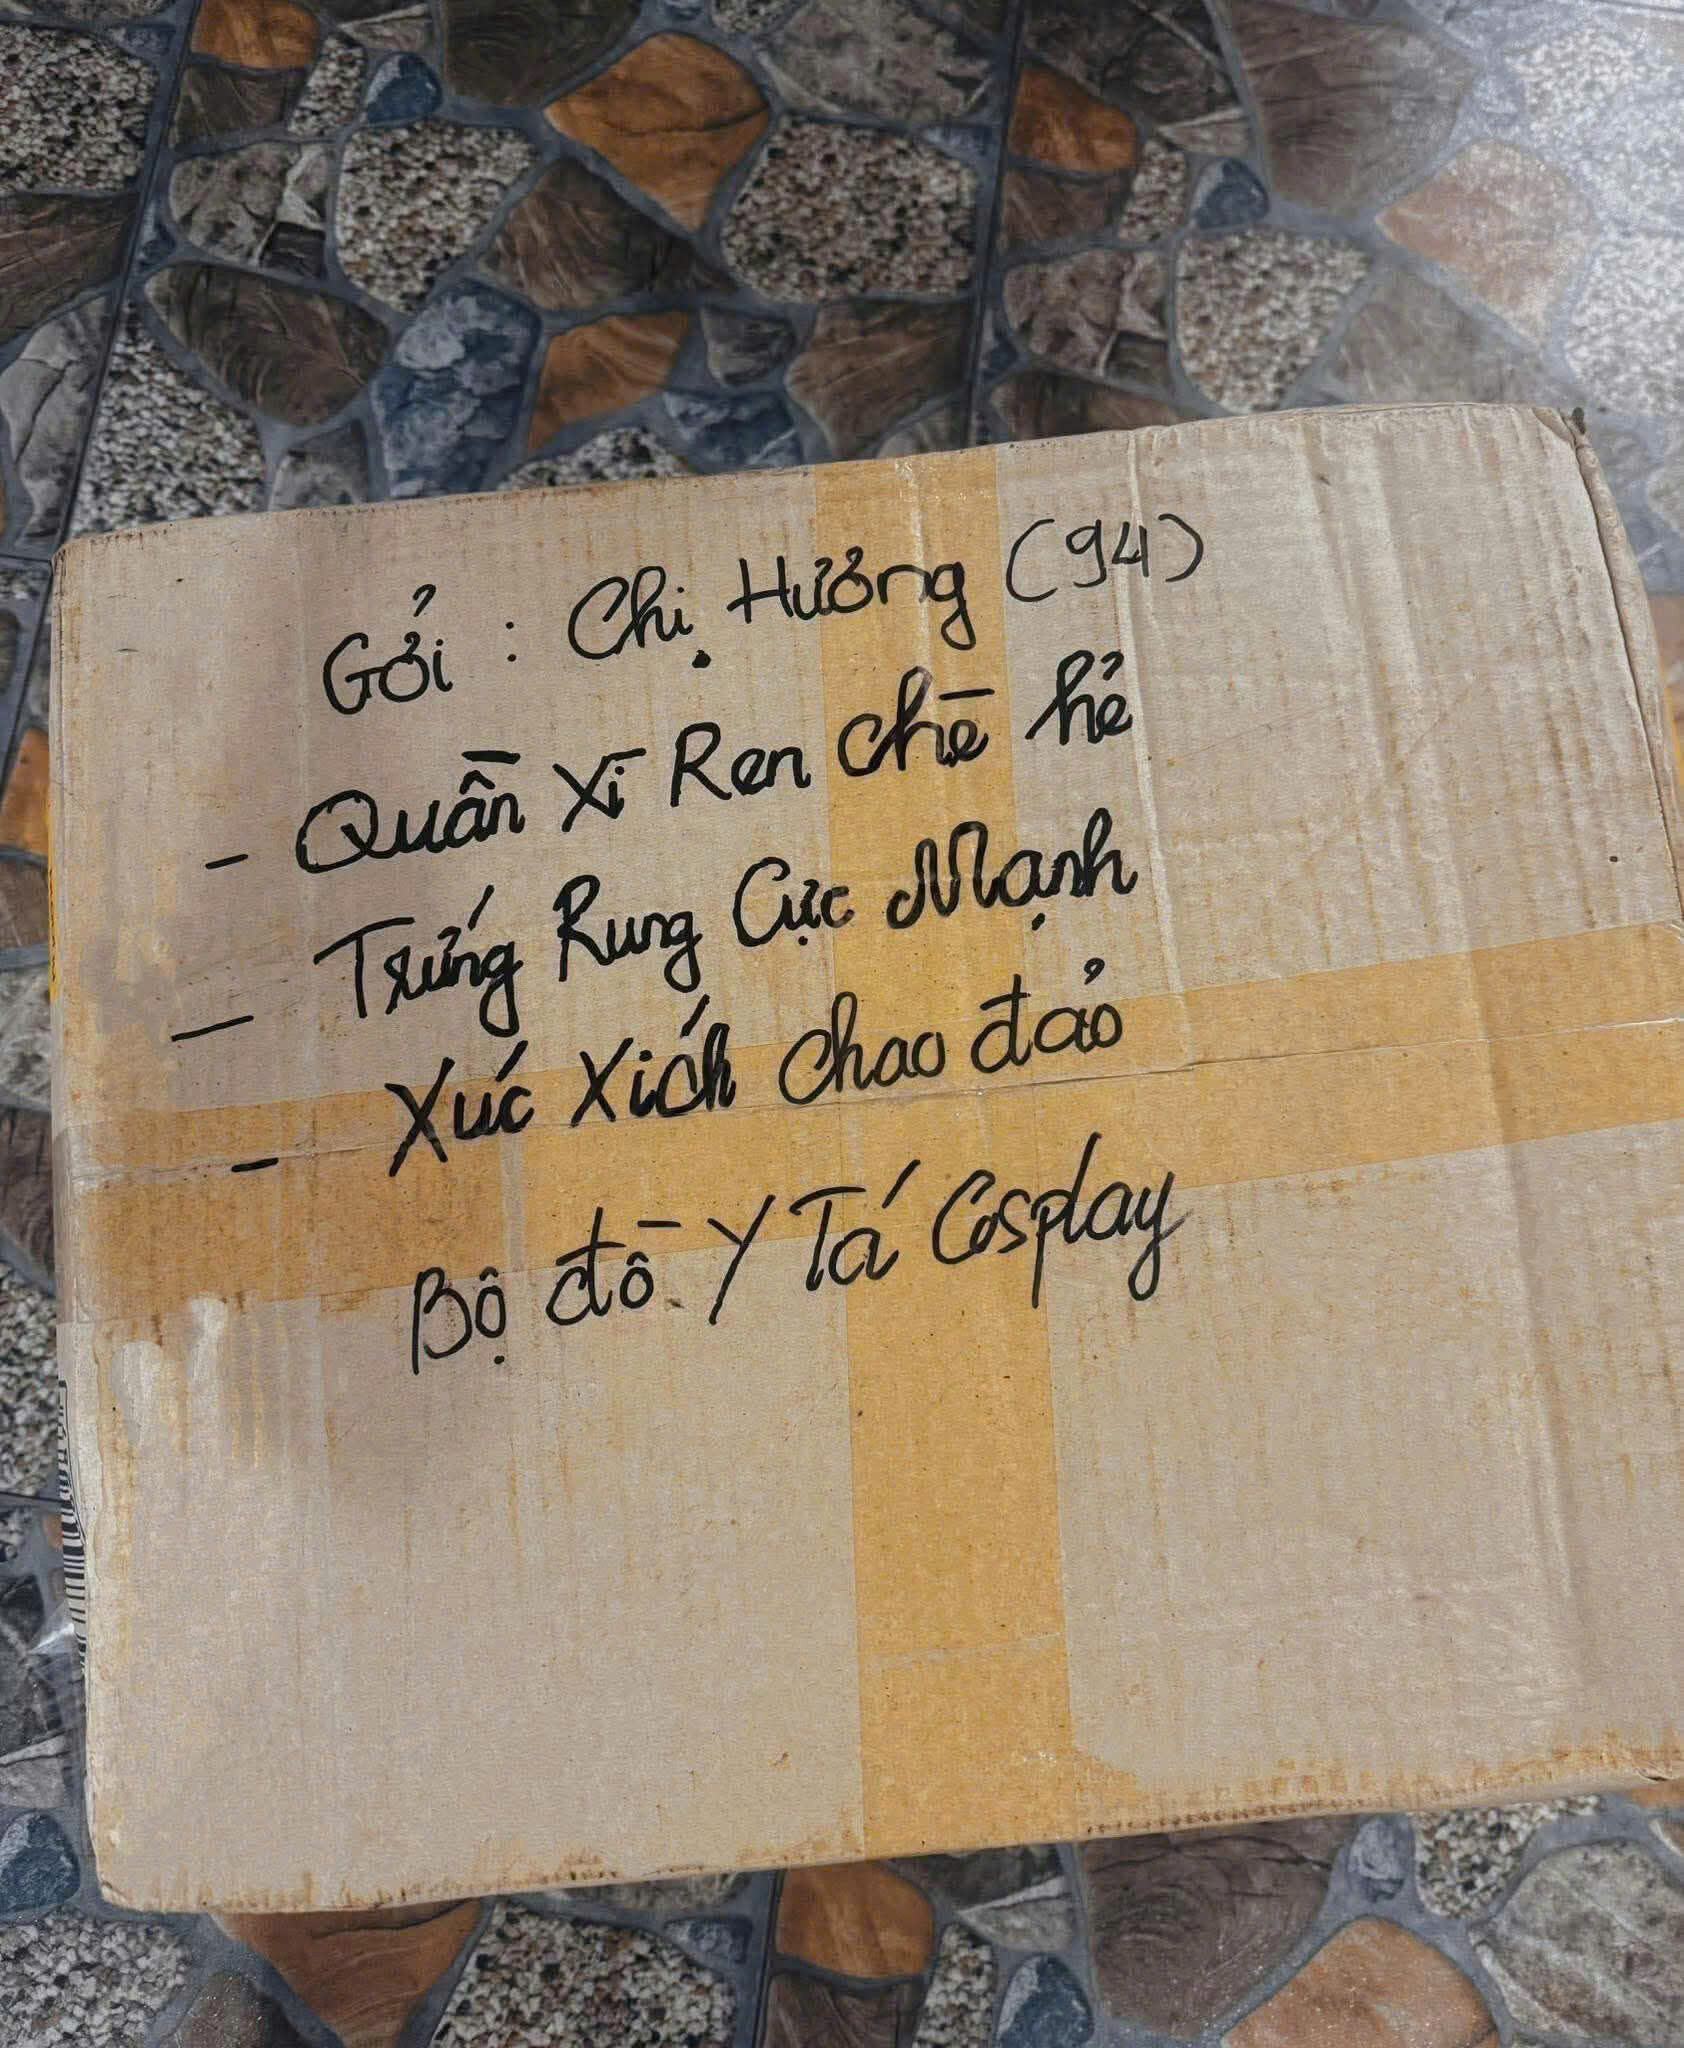 Gởi : Chị Hưởng (94)
- Quần Xì Ren chè hẻ
- Trứng Rung Cực Mạnh
- Xúc Xích chao đảo
Bộ đồ Y Tá Cosplay